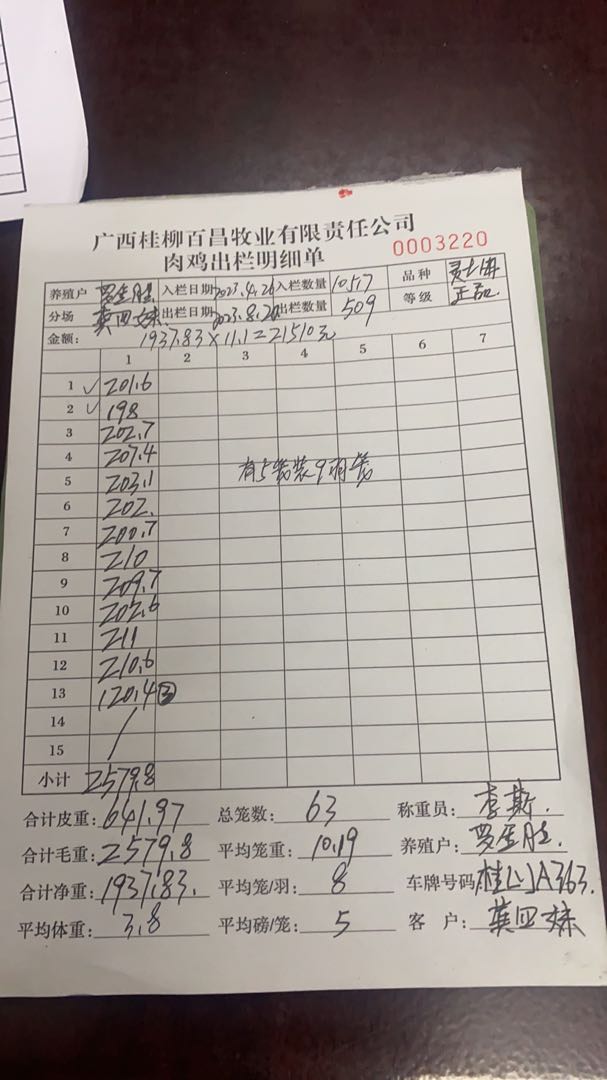 广西桂柳百昌牧业有限责任公司
肉鸡出栏明细单 0003220
养殖户 罗金胜 入栏日期 2023.4.26 入栏数量 10517 品种
分场 龚四妹 出栏日期 2023.8.20 出栏数量 509 等级 正品
金额: 1937.83×11.1=21510元
1 2 3 4 5 6 7
1 201.6
2 198
3 202.7
4 207.4
5 203.1 有5笼装9羽笼
6 202.
7 200.7
8 210
9 209.7
10 202.6
11 211
12 210.6
13 120.4 ③
14
15
小计 2579.8
合计皮重: 641.97 总笼数: 63 称重员: 李斯.
合计毛重: 2579.8 平均笼重: 10.19 养殖户: 罗金胜.
合计净重: 1937.83. 平均笼/羽: 8 车牌号码 A363.
平均体重: 3.8 平均磅/笼: 5 客户: 龚四妹